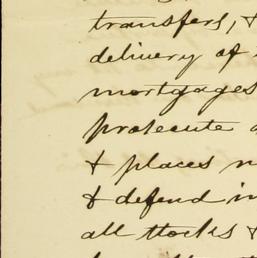 transfers, &
delivery of
mortgages
prosecute
& places
& defend in
all stocks &